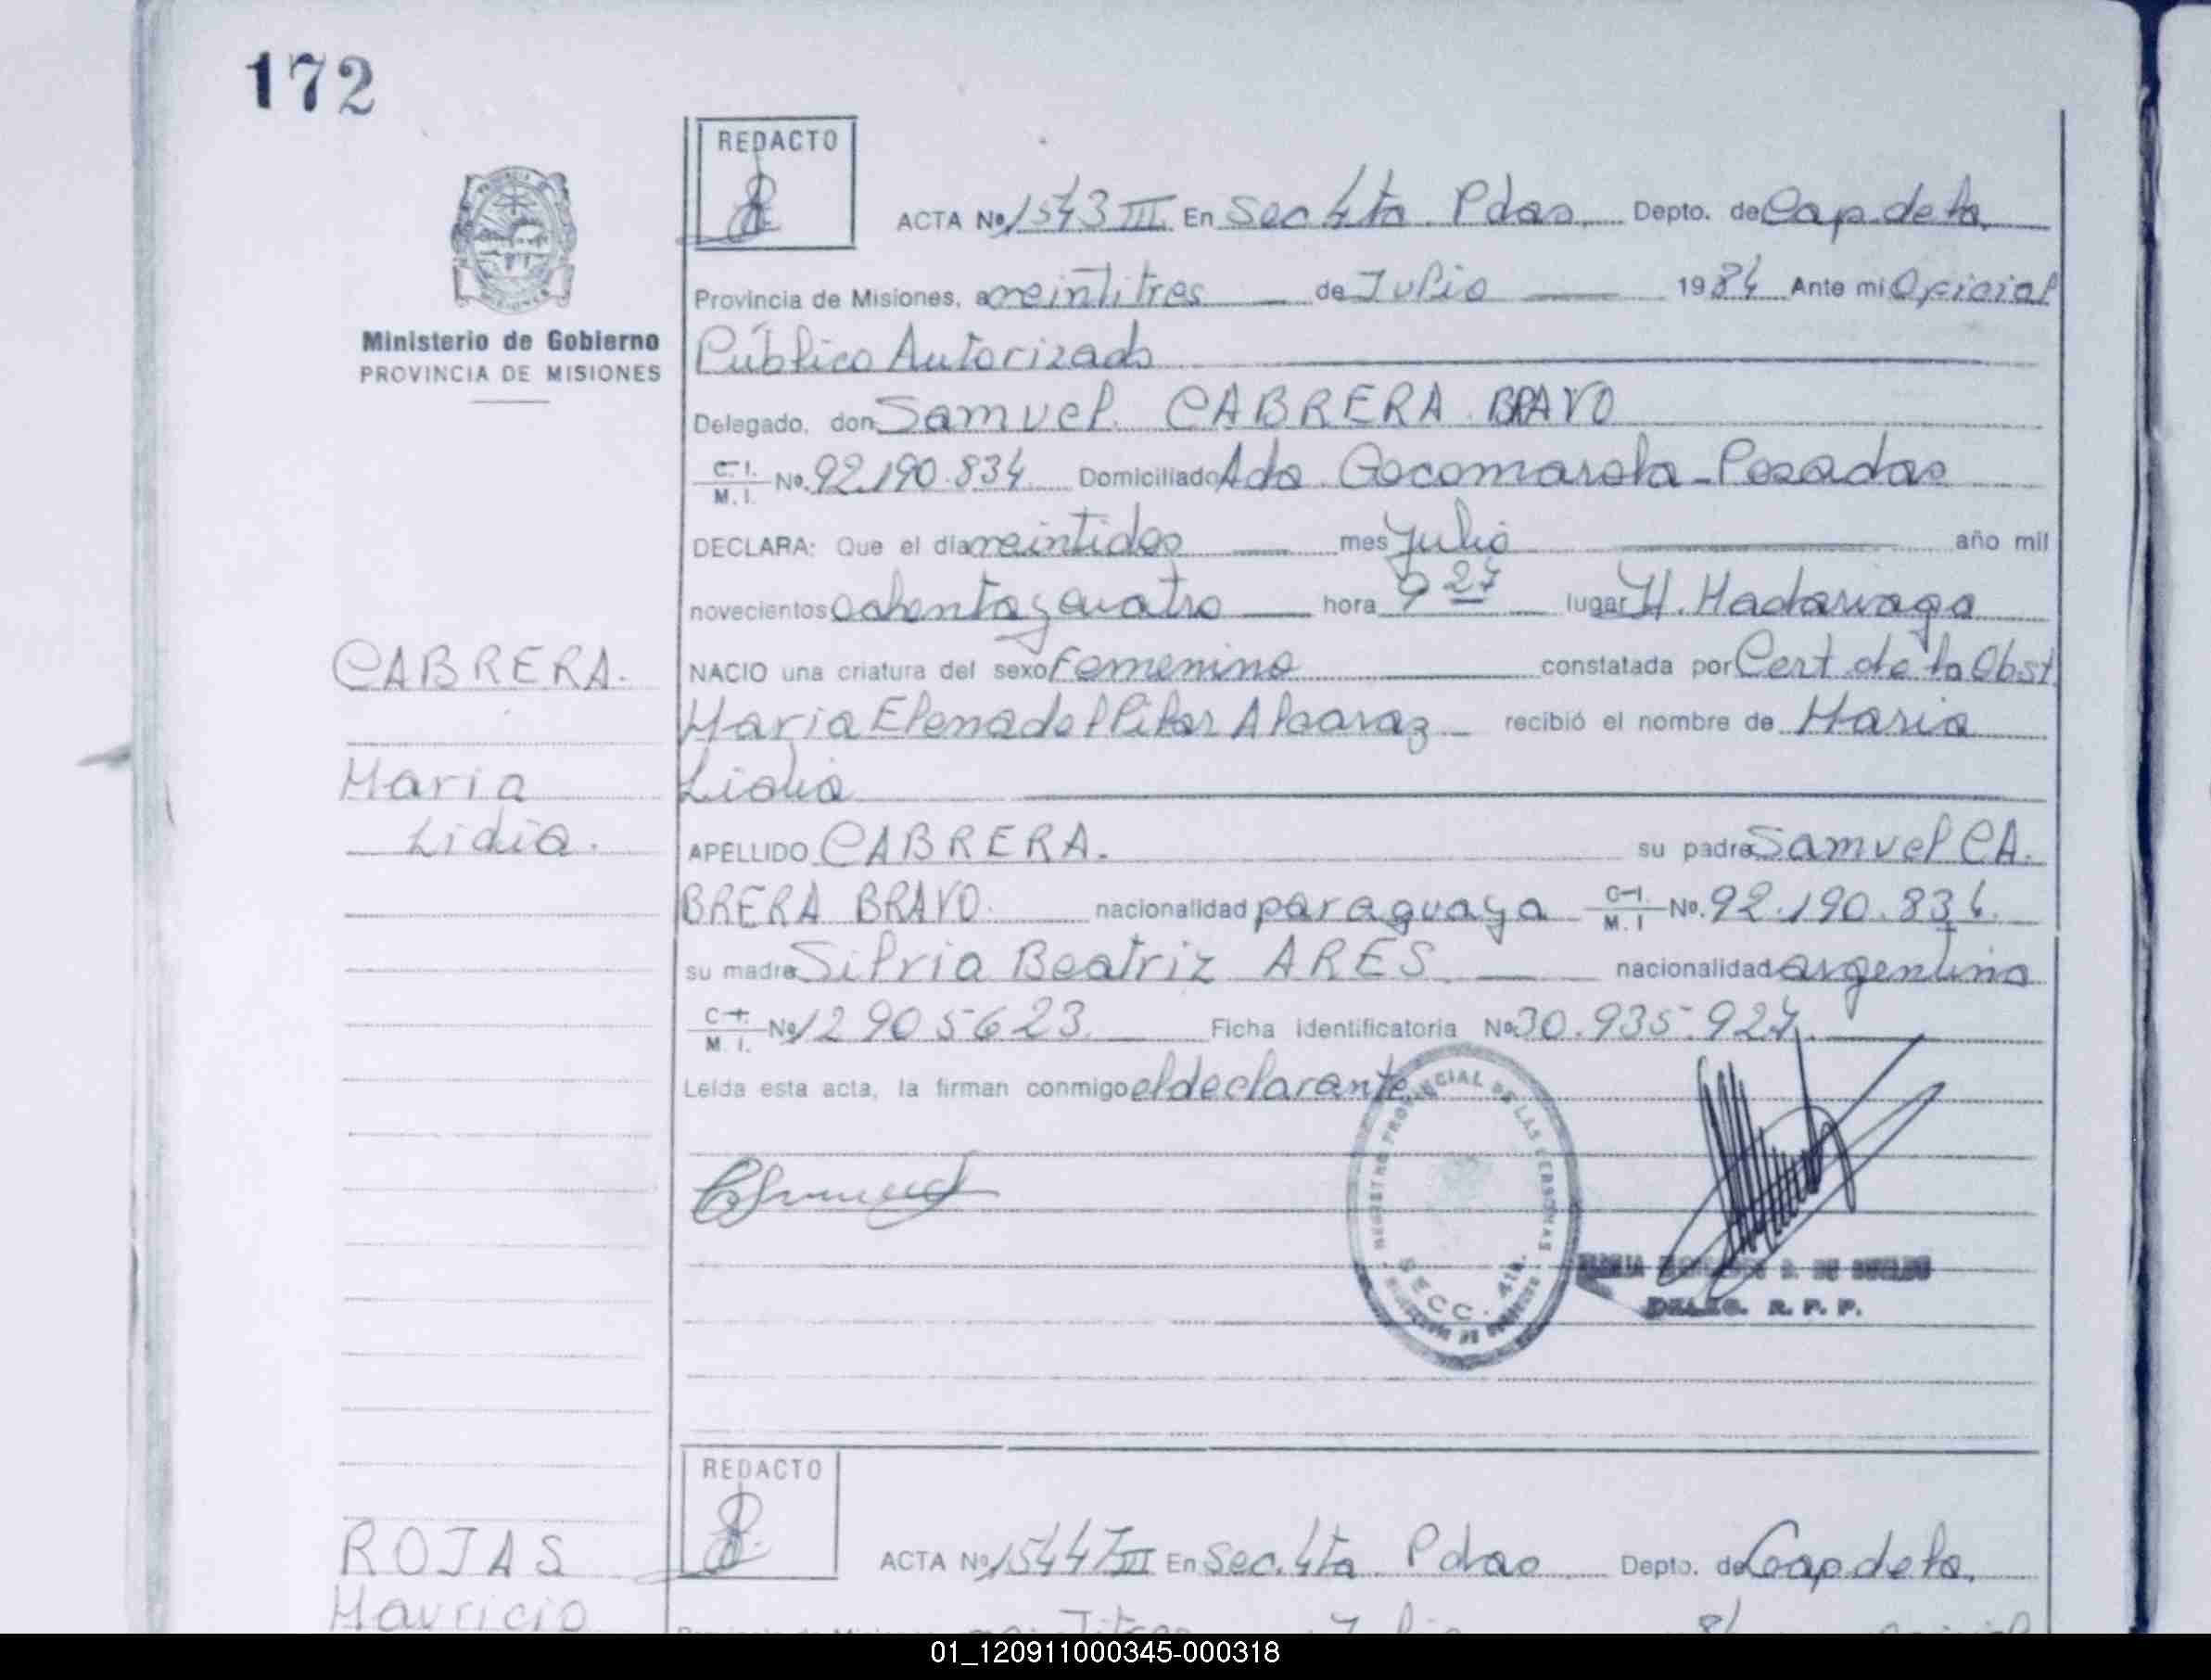 172
REDACTO
ACTA Nº 1543 III En Sec 4ta Pdas. Depto. de Cap. de ta.
Provincia de Misiones, a veintitres de Julio 1984 Ante mi Oficial
Público Autorizado
Ministerio de Gobierno
PROVINCIA DE MISIONES
Delegado, don Samuel CABRERA BRAVO
C.I. M.I. No. 92.190.834 Domiciliado Posadas
DECLARA: Que el día veintidos mes Julio año mil
novecientos ochenta y cuatro hora 9 27 lugar H. Madariaga
CABRERA.
NACIO una criatura del sexo Femenino constatada por Cert. de la Obst.
Maria Elena del Pilar Alcaraz recibió el nombre de Maria
Maria
Lidia
Lidia.
APELLIDO CABRERA. su padre Samuel CA.
BRERA BRAVO. nacionalidad paraguaya C.I. M.I No. 92.190.834.
su madre Silvia Beatriz ARES nacionalidad argentina
C.I. M.I. No 12905623. Ficha identificatoria No 30.935.927.
Leída esta acta, la firman conmigo el declarante
REGISTRO PROVINCIAL DE LAS PERSONAS
SECC. 4ta.
DE
DELEG. R. P. P.
REDACTO
ROJAS
ACTA Nº 1544 III En Sec. 4ta Pdas Depto. de Cap de ta.
Mauricio
01_120911000345-000318